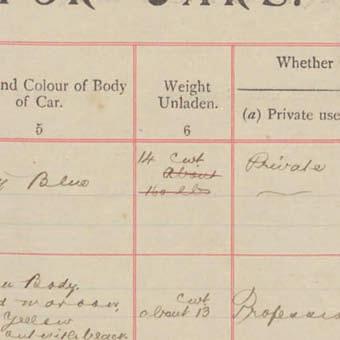 FOR CARS.
nd Colour of Body
of Car.
5
Weight
Unladen.
6
Whether
(a) Private use
Blue
14 cwt
About
160 lbs
Private
Body,
maroon,
Yellow
black
cwt
about 13
Profession